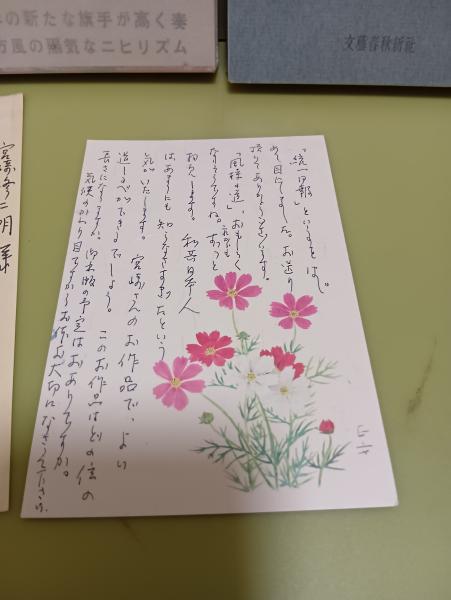 の新たな旗手が高く奏
風の陽気なニヒリズム
文藝春秋新社
宮崎修二朗 様
「統一日報」といいますとは。
めて目にしました。お送り
頂いてありがとうございます。
の道」、おもしろく
なりそうですね。これからもずっと
拝見します。私共日本人
はあまりにも知らなすぎたという
気がいたします。宮崎さんのお作品で、よい
道しるべができるでしょう。このお作品はどの位の
長さになりますか。御出版の予定はおありですか。
気候のかわり目ですからお体お大切になさって下さい